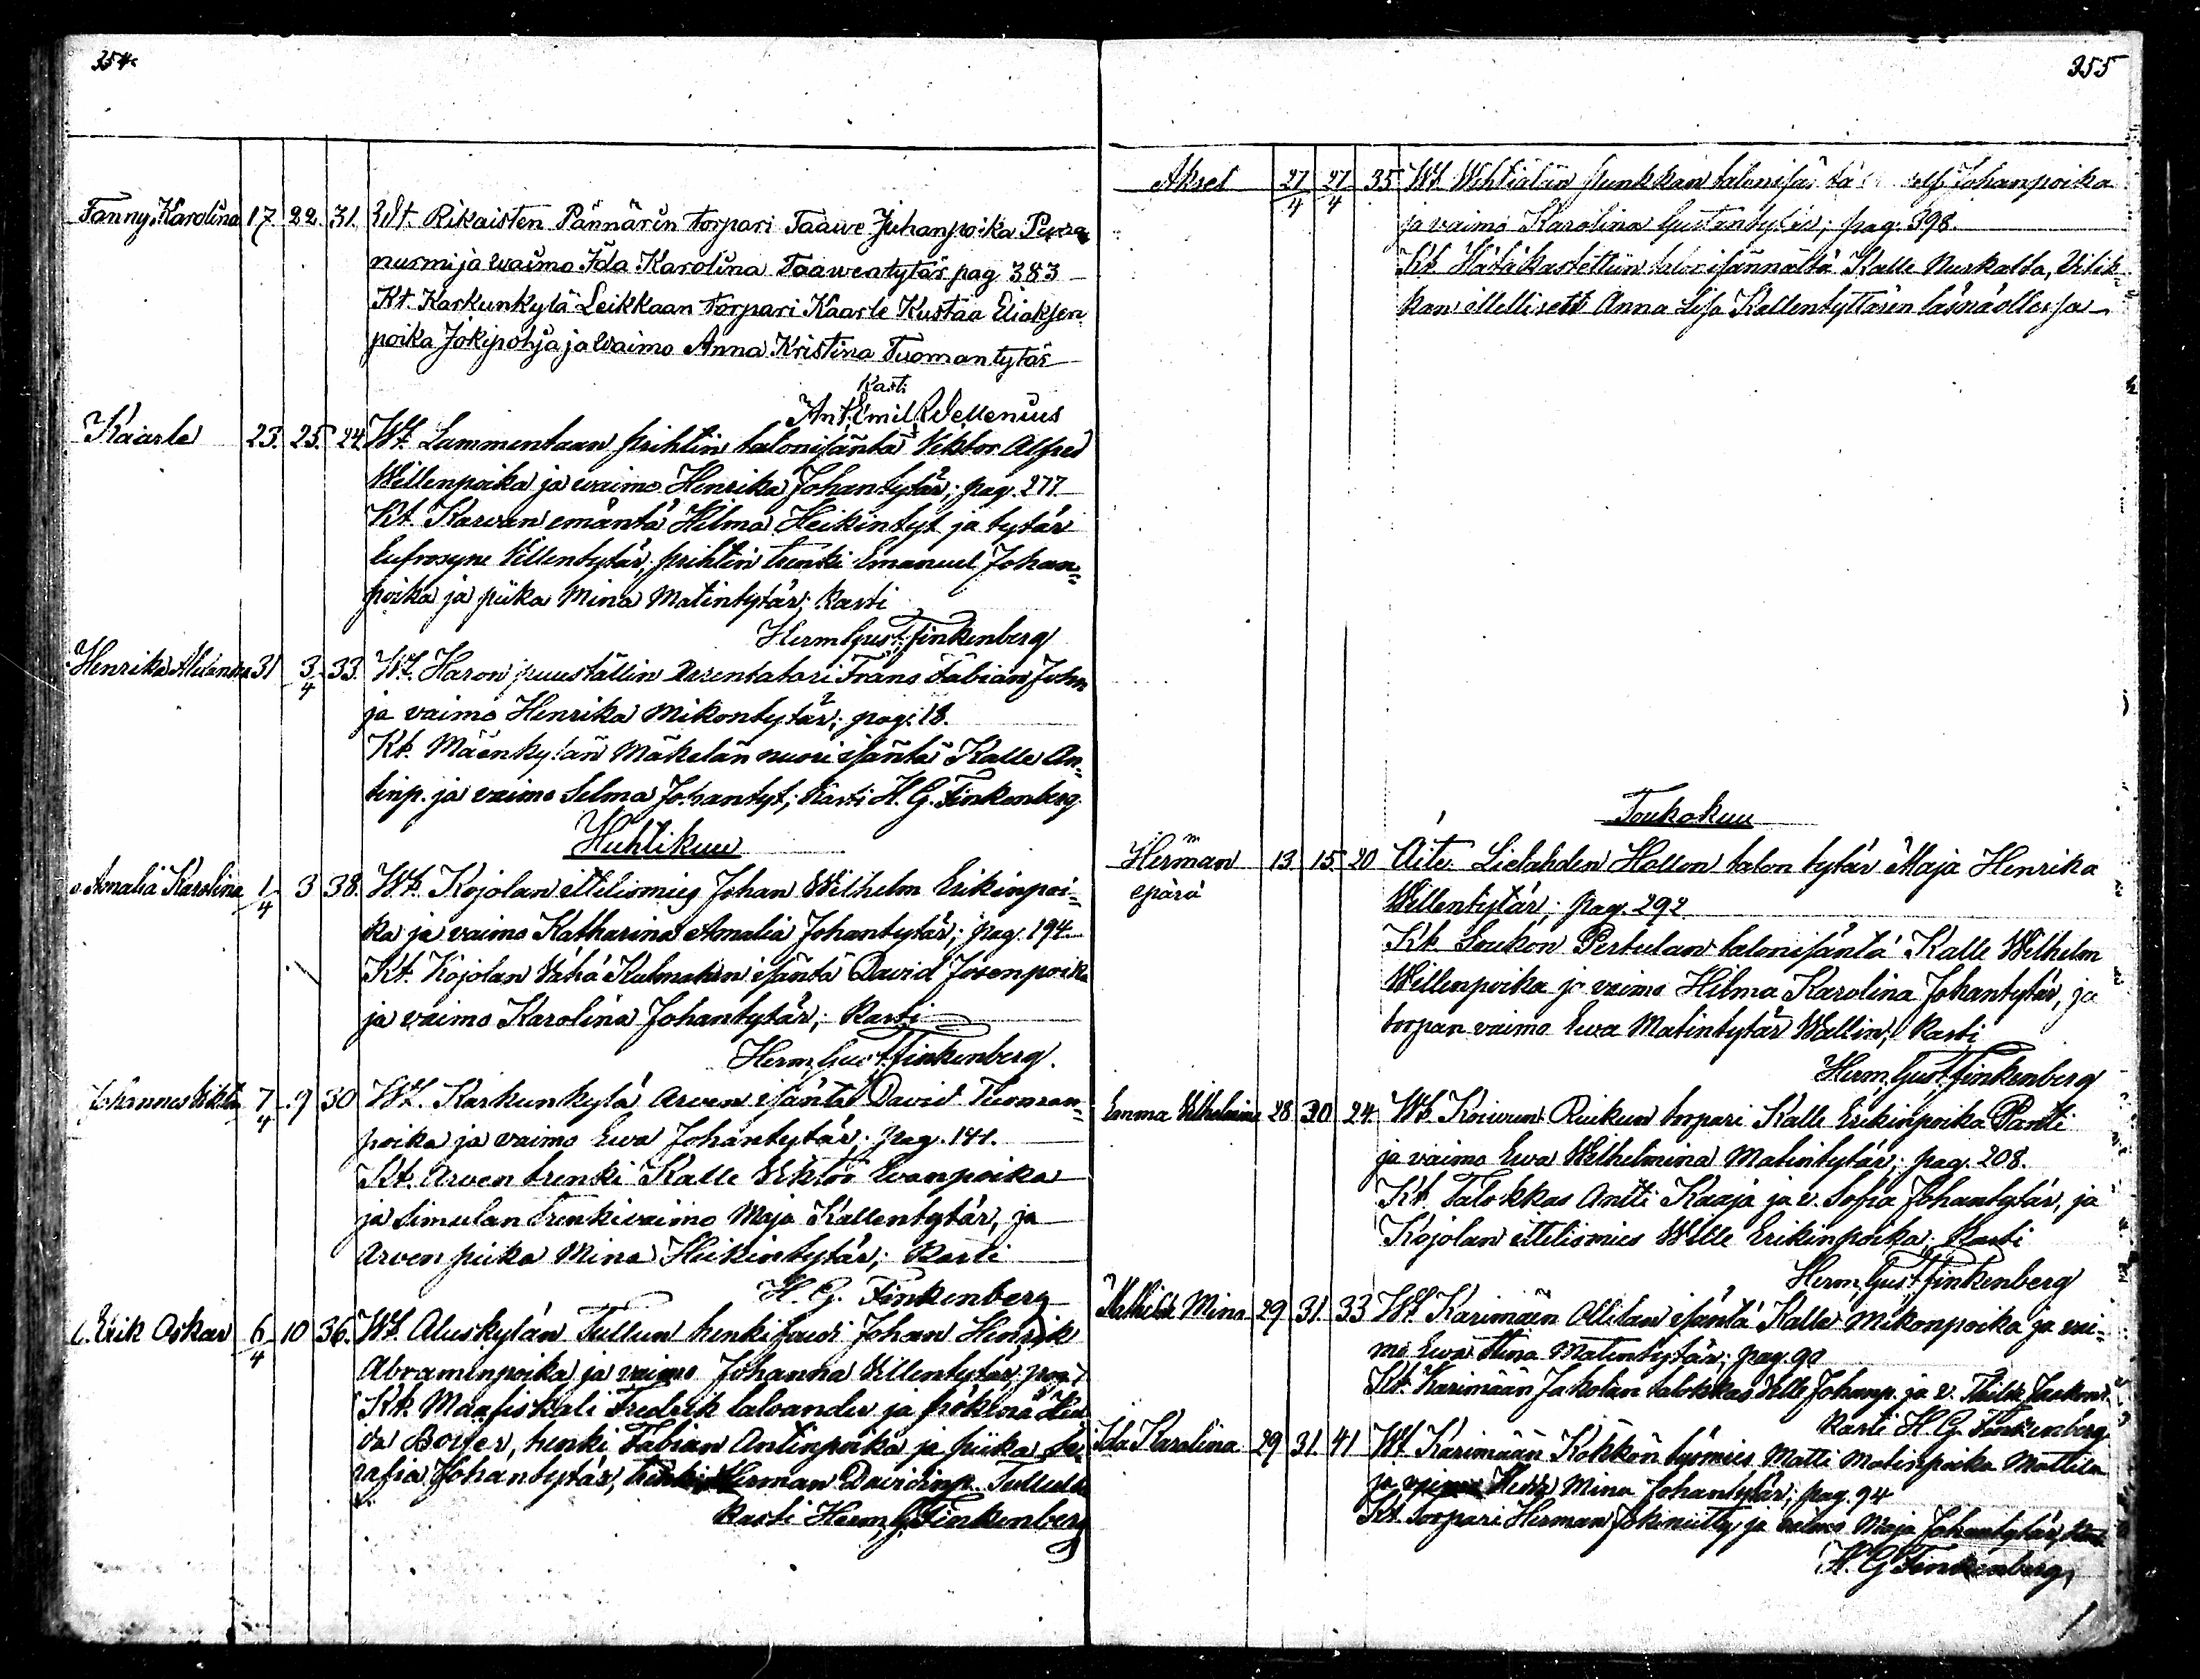 354.
Fanny Karolina 17. 22. 31. Wt. Rikaisten Pännärin torpari Taawe Juhanpoika
nurmi ja waimo Ida Karolina Taawentytär pag 383
Kt. Karkunkylä Leikkaan torpari Kaarle Kustaa Eliaksen
poika Jokipohja ja waimo Anna Kristina Tuomantytär
Kasti
Ant. Emil Wellenius
Kaarle 23. 25. 24. Wt. Lammentaan prihtin talonisäntä Viktor Alfred
Willenpoika ja waimo Henrika Johantytär; pag. 277
Kt Karvan emäntä Hilma Heikintyt ja tytär
Eufrosyne Villentytär, prihtin trenki Emanuel Johan=
poika ja piika Mina Matintytär; Kasti
Herm. Gust. Finkenberg
Henrika 31 3/4 33. Wt. Haron puuställin Arrentatori Frans Fabian Johnp
ja vaimo Henrika Mikontytär; pag. 18.
Kt. Mäenkylän Mäkelän nuori isäntä Kalle An=
tinp. ja vaimo Selma Johantyt; Kasti H. G. Finkenberg
Huhtikuu
Amalia Karolina 1/4 3 38. Wt. Kojolan ittelismies Johan Wilhelm Erikinpoi=
ka ja vaimo Katharina Amalia Johantytär; pag. 194
Kt. Kojolan Vähä isäntä David Josenpoika
ja vaimo Karolina Johantytär; Kasti
Herm. Gust. Finkenberg.
Johannes Viktor 7/4 9 30 Wt. Karkunkylä Arven isäntä David Tuoman=
poika ja vaimo Ewa Johantytär; pag. 141.
Kt. Arven trenki Kalle Viktor Evanpoika
ja Simulan Trenkivaimo Maja Kallentytär, ja
Arven piika Mina Heikintytär; Kasti
H. G. Finkenberg
Erik Oskar 6/4 10 36. Wt. Aluskylän Tullun henkifuudi Johan Henrik
Abraminpoika ja vaimo Johanna Villentytär pag
Kt. Maafiskali Fredrik ja
da Boyer, trenki Fabian Antinpoika ja piika Se=
rafia Johantytär, trenki Herman Davidinp. Tullulta
Kasti Herm. G. Finkenberg
355
Aksel 27/4 27/4 35 Wt. Wehtiälän talonisä tä Johanpoika
ja vaimo Karolina Gustantytär; pag. 398.
Kt Hätäkastettiin talonisännältä Kalle Nuskalta,
kan itellisen Anna Lisa Kallentyttären läsnäollessa
Toukokuu
Herman 13 15 20 Äite. Lielahden Hollon talon tytär Maja Henrika
epärä
Willentytär; pag. 292
Kt. Soukon Pertulan talonisäntä Kalle Wilhelm
Willenpoika ja vaimo Hilma Karolina Johantytär, ja
torpan vaimo Ewa Matintytär Wallin; Kasti
Herm. Gust. Finkenberg
Emma Vilhelmina 28 30 24. Wt. Korvun Ruikun torpari Kalle Erikinpoika Pantti
ja vaimo Ewa Wilhelmina Matintytär; pag. 208.
Kt. Talokkas Antti Kaaja ja v. Sofia Johantytär, ja
Kojolan ittelismies Wille Erikinpoika; Kasti
Herm. Gust. Finkenberg
Mathilda Mina 29 31. 33 Wt. Karimäen Ollilan isäntä Kalle Mikonpoika ja vai=
mo Ewa Stina Matintytär; pag. 90
Kt. Karimään Jakolan talokkas Ville Johanp. ja v.
Kasti H. G. Finkenberg
Ida Karolina 29 31 41 Wt Karimään Kokkon työmies Matti Matinpoika Mattila
ja vaimo Hedda Mina Johantytär; pag. 94
Kt torpari Herman Jokiniitty ja vaimo Maja Johantytär, Kasti
H. G Finkenberg,